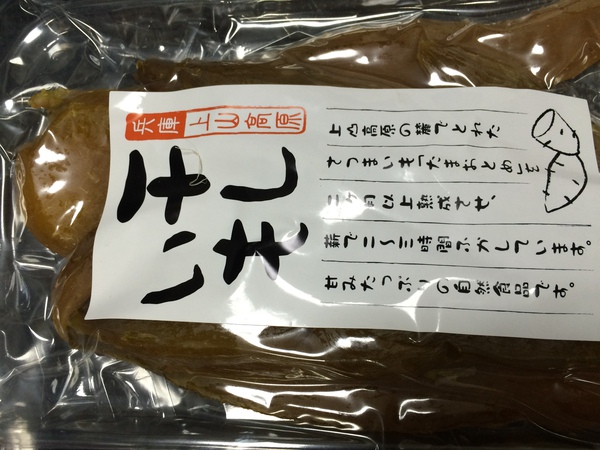 兵庫 上山高原
干し
いも
上山高原の麓でとれた
さつまいも「たまおとめ」を
二ヶ月以上熟成させ、
薪で二〜三時間ふかしています。
甘みたっぷりの自然食品です。